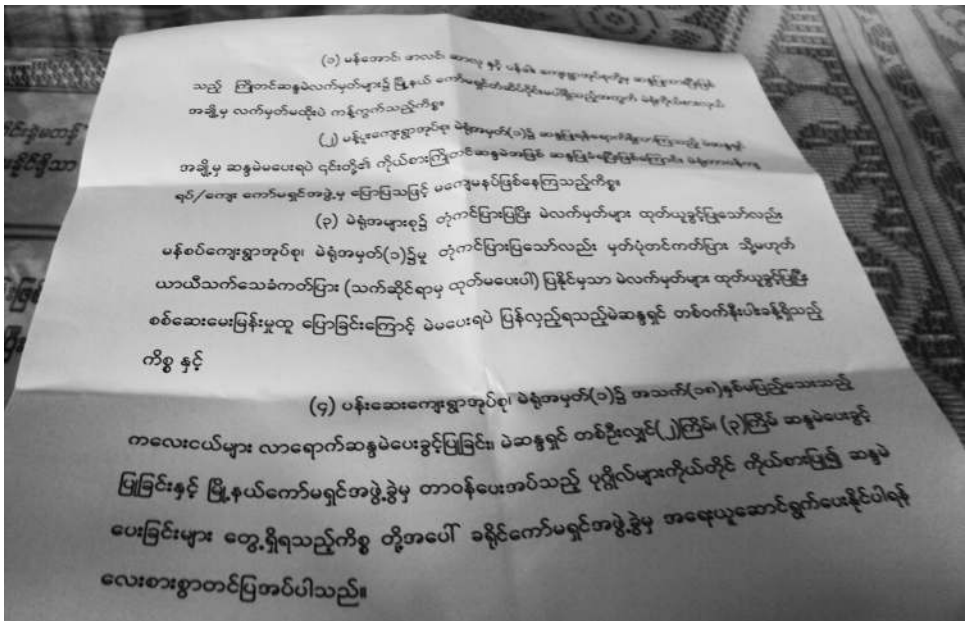 (၁) မန်အောင်၊ ဆာလင်၊ ဆာလူ နှင့် ပန်
သည့် ကြိုတင်ဆန္ဒမဲလက်မှတ်များ၌ မြို့နယ် ကော်မရှင်တံဆိပ်
အချို့မှ လက်မှတ်မထိုးပဲ ကန့်ကွက်သည့်ကိစ္စ။
(၂) မန်ပူးကျေးရွာအုပ်စု၊ မဲရုံအမှတ်(၁)၌
အချို့မှ ဆန္ဒမဲမပေးရပဲ ၎င်းတို့၏ ကိုယ်စားကြိုတင်ဆန္ဒမဲအဖြစ် ဆန္ဒပြု
ရပ်/ကျေး ကော်မရှင်အဖွဲ့မှ ပြောပြသဖြင့် မကျေမနပ်ဖြစ်နေကြသည့်ကိစ္စ။
(၃) မဲရုံအများစု၌ တုံကင်ပြားပြပြီး မဲလက်မှတ်များ ထုတ်ယူခွင့်ပြုသော်လည်း
မန်စပ်ကျေးရွာအုပ်စု၊ မဲရုံအမှတ်(၁)၌မူ တုံကင်ပြားပြသော်လည်း မှတ်ပုံတင်ကတ်ပြား သို့မဟုတ်
ယာယီသက်သေခံကတ်ပြား (သက်ဆိုင်ရာမှ ထုတ်မပေးပါ) ပြနိုင်မှသာ မဲလက်မှတ်များ ထုတ်ယူခွင့်ပြုပြီး
စစ်ဆေးမေးမြန်းမှုထူ ပြောခြင်းကြောင့် မဲမပေးရပဲ ပြန်လှည့်ရသည့်မဲဆန္ဒရှင် တစ်ဝက်နီးပါးခန့်ရှိသည့်
ကိစ္စ နှင့်
(၄) ပန်းဆေးကျေးရွာအုပ်စု၊ မဲရုံအမှတ်(၁)၌ အသက်(၁၈)နှစ်မပြည့်သေးသည့်
ကလေးငယ်များ လာရောက်ဆန္ဒမဲပေးခွင့်ပြုခြင်း၊ မဲဆန္ဒရှင် တစ်ဦးလျှင်(၂)ကြိမ်၊ (၃)ကြိမ် ဆန္ဒမဲပေးခွင့်
ပြုခြင်းနှင့် မြို့နယ်ကော်မရှင်အဖွဲ့ခွဲမှ တာဝန်ပေးအပ်သည့် ပုဂ္ဂိုလ်များကိုယ်တိုင် ကိုယ်စားပြု၍ ဆန္ဒမဲ
ပေးခြင်းများ တွေ့ရှိရသည့်ကိစ္စ တို့အပေါ် ခရိုင်ကော်မရှင်အဖွဲ့ခွဲမှ အရေးယူဆောင်ရွက်ပေးနိုင်ပါရန်
လေးစားစွာတင်ပြအပ်ပါသည်။